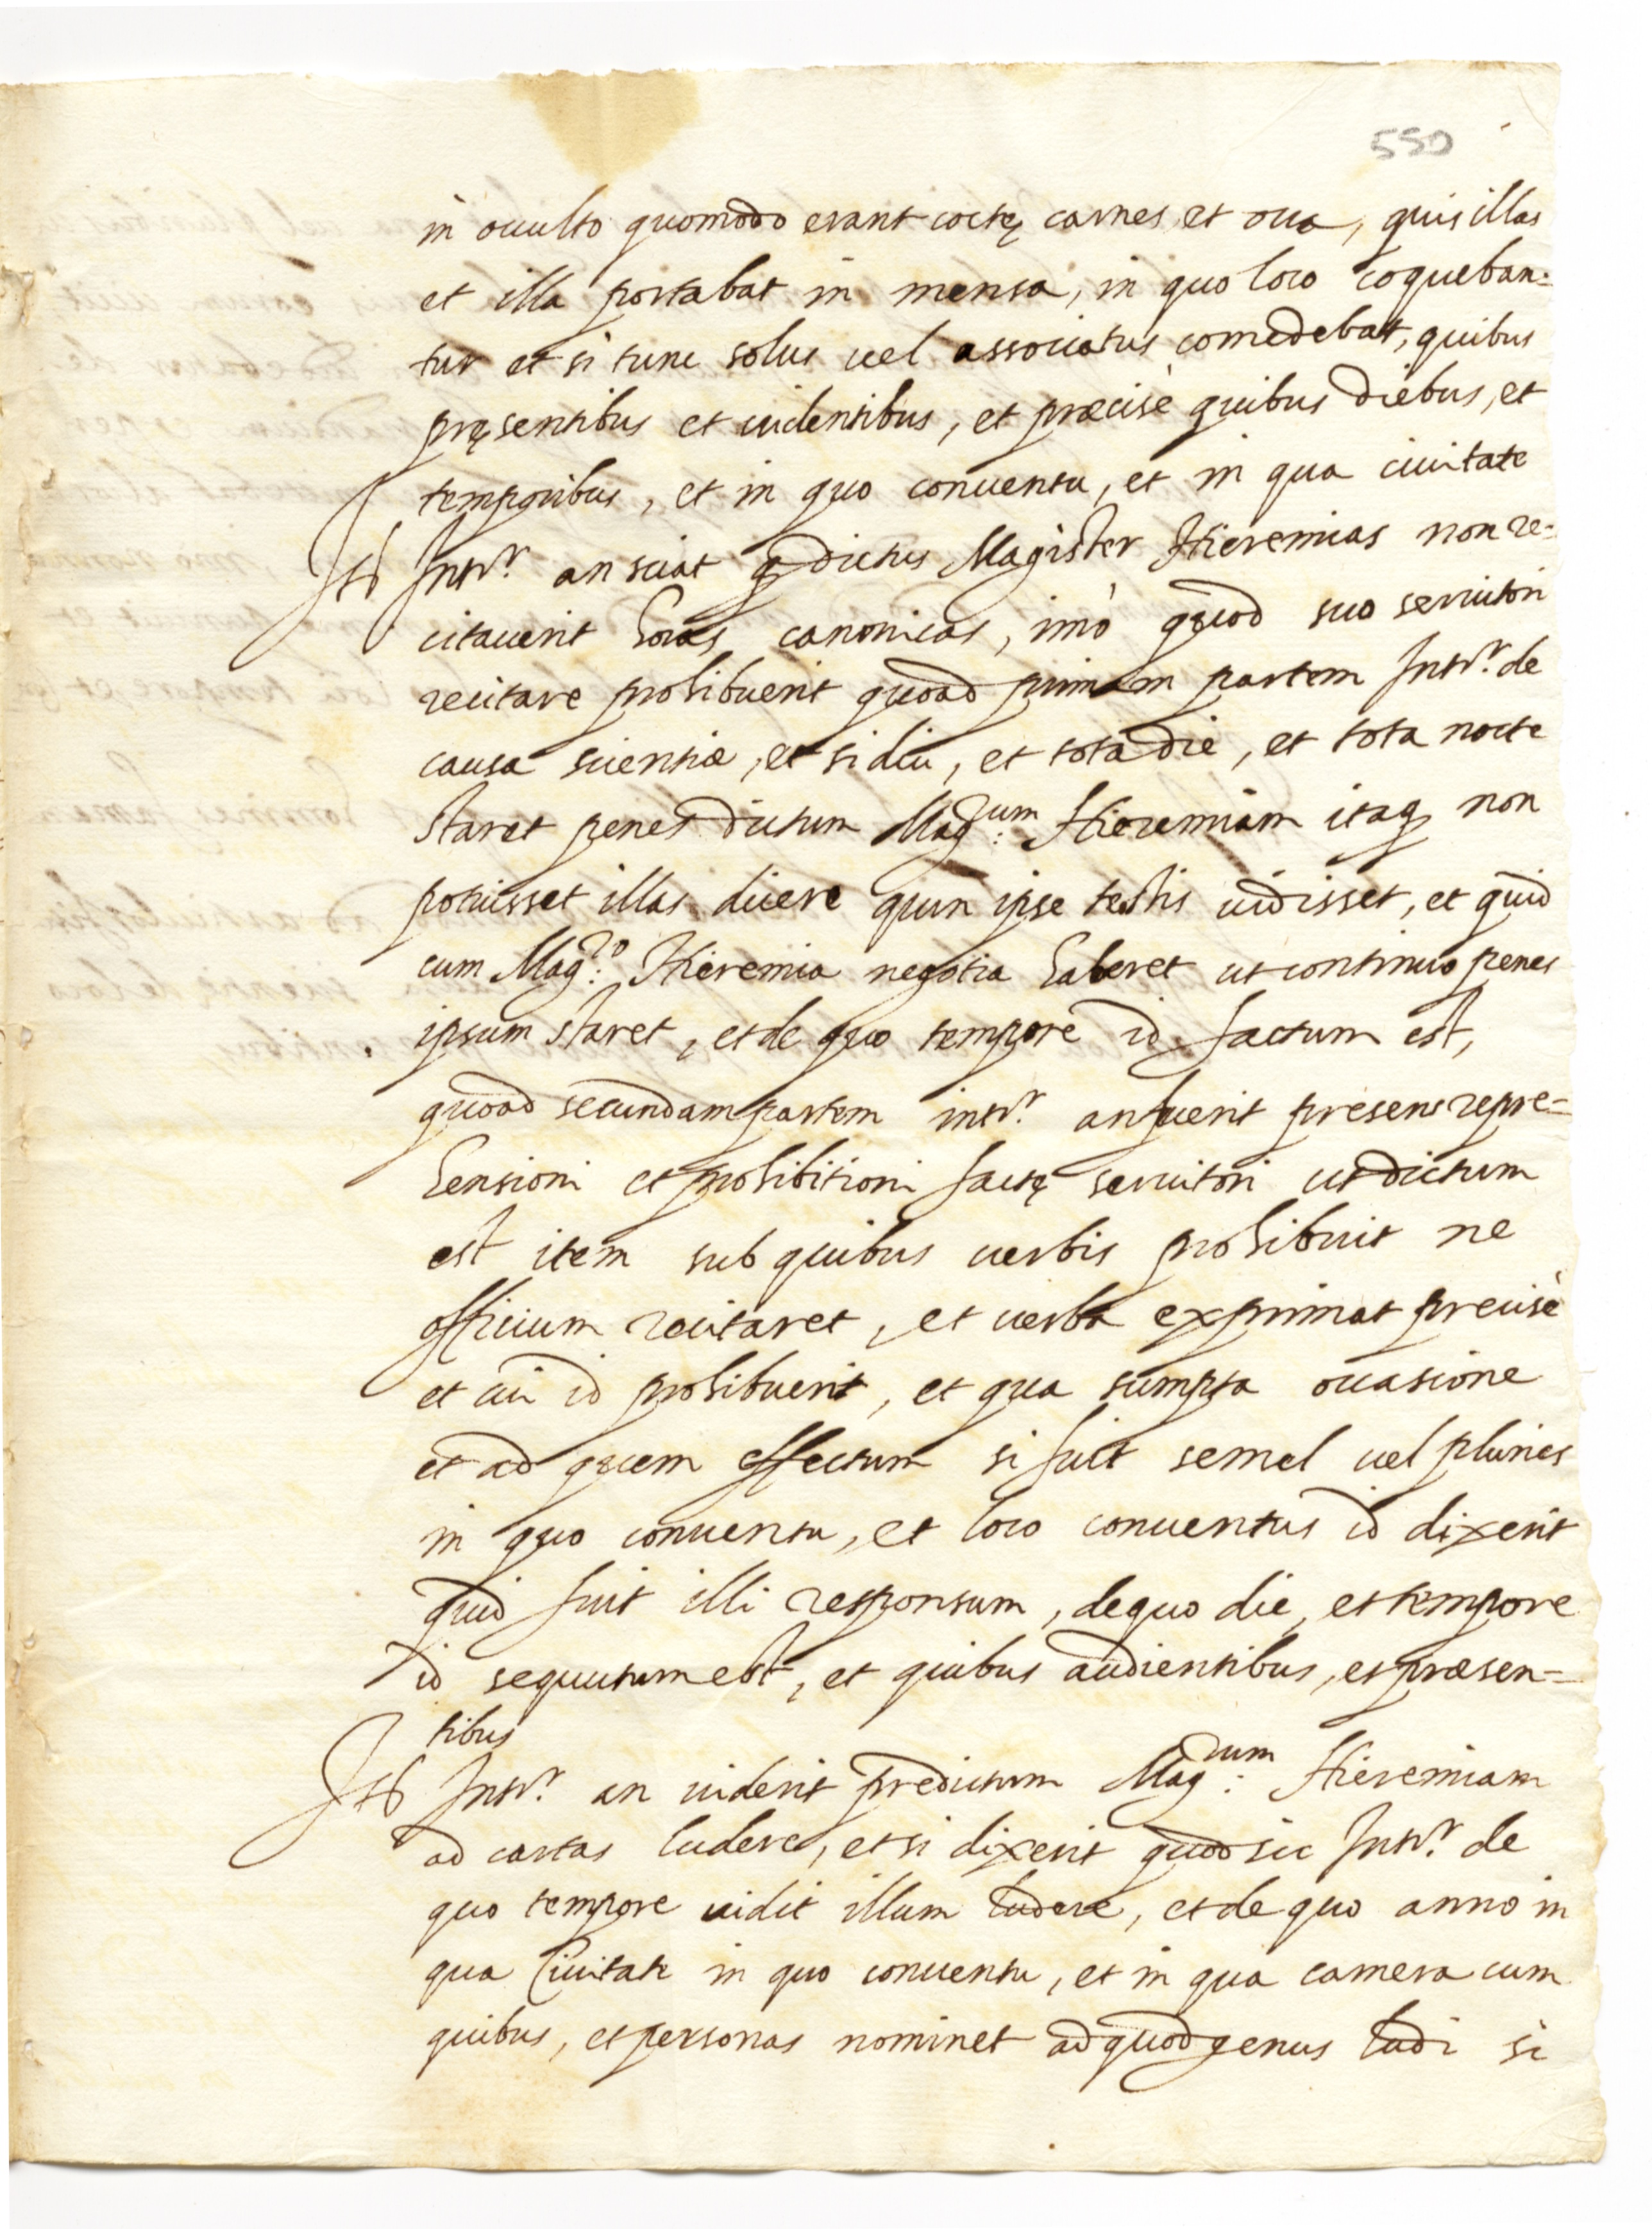 550
in occulto quomodo erant coctę carnes, et oua, quis illas
et illa portabat in mensa, in quo loco coqueban=
tur et si tunc solus uel associatus comedebat, quibus
pręsentibus et uidentibus, et præcisè quibus diebus, et
temporibus, et in quo conuentu, et in qua ciuitate
Itē Intr.r an sciat q̃ dictus Magister Hieremias non re=
citauerit horas canonicas, imò quod suo seruitori
recitare prohibuerit quoad primam partem Intr.r de
causa scientiæ, et si diu, et tota die, et tota nocte
staret penes dictum Mag:rum Hieremiam itaq; non
potuisset illas dicere quin ipse testis uidisset, et quid
cum Mag:ro Hieremia negotia haberet ut continuo penes
ipsum staret, et de quo tempore id factum est,
quoad secundam partem intr.r an fuerit presens repre=
hensioni et prohibitioni factę seruitori ut dictum
est item sub quibus uerbis prohibuit ne
officium recitaret, et uerba exprimat precisè
et cui id prohibuerit, et qua sumpta occasione
et ad quem effectum si fuit semel uel pluries
in quo conuentu, et loco conuentus id dixerit
quid fuit illi responsum, de quo die, et tempore
id sequutum est, et quibus audientibus, et præsen=
tibus
Itē Intr.r an uiderit predictum Mag:rum Hieremiam
ad cartas ludere, et si dixerit quod sic Intr.r de
quo tempore uidit illum ludere, et de quo anno in
qua Ciuitate in quo conuentu, et in qua camera cum
quibus, et personas nominet ad quod genus ludi si